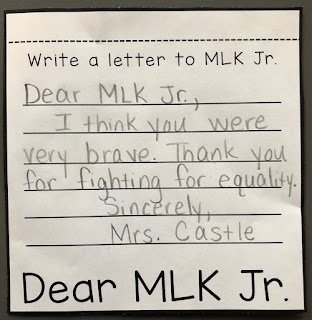 Write a letter to MLK Jr.
Dear MLK Jr.,
I think you were
very brave. Thank you
for fighting for equality.
Sincerely,
Mrs. Castle
Dear MLK Jr.